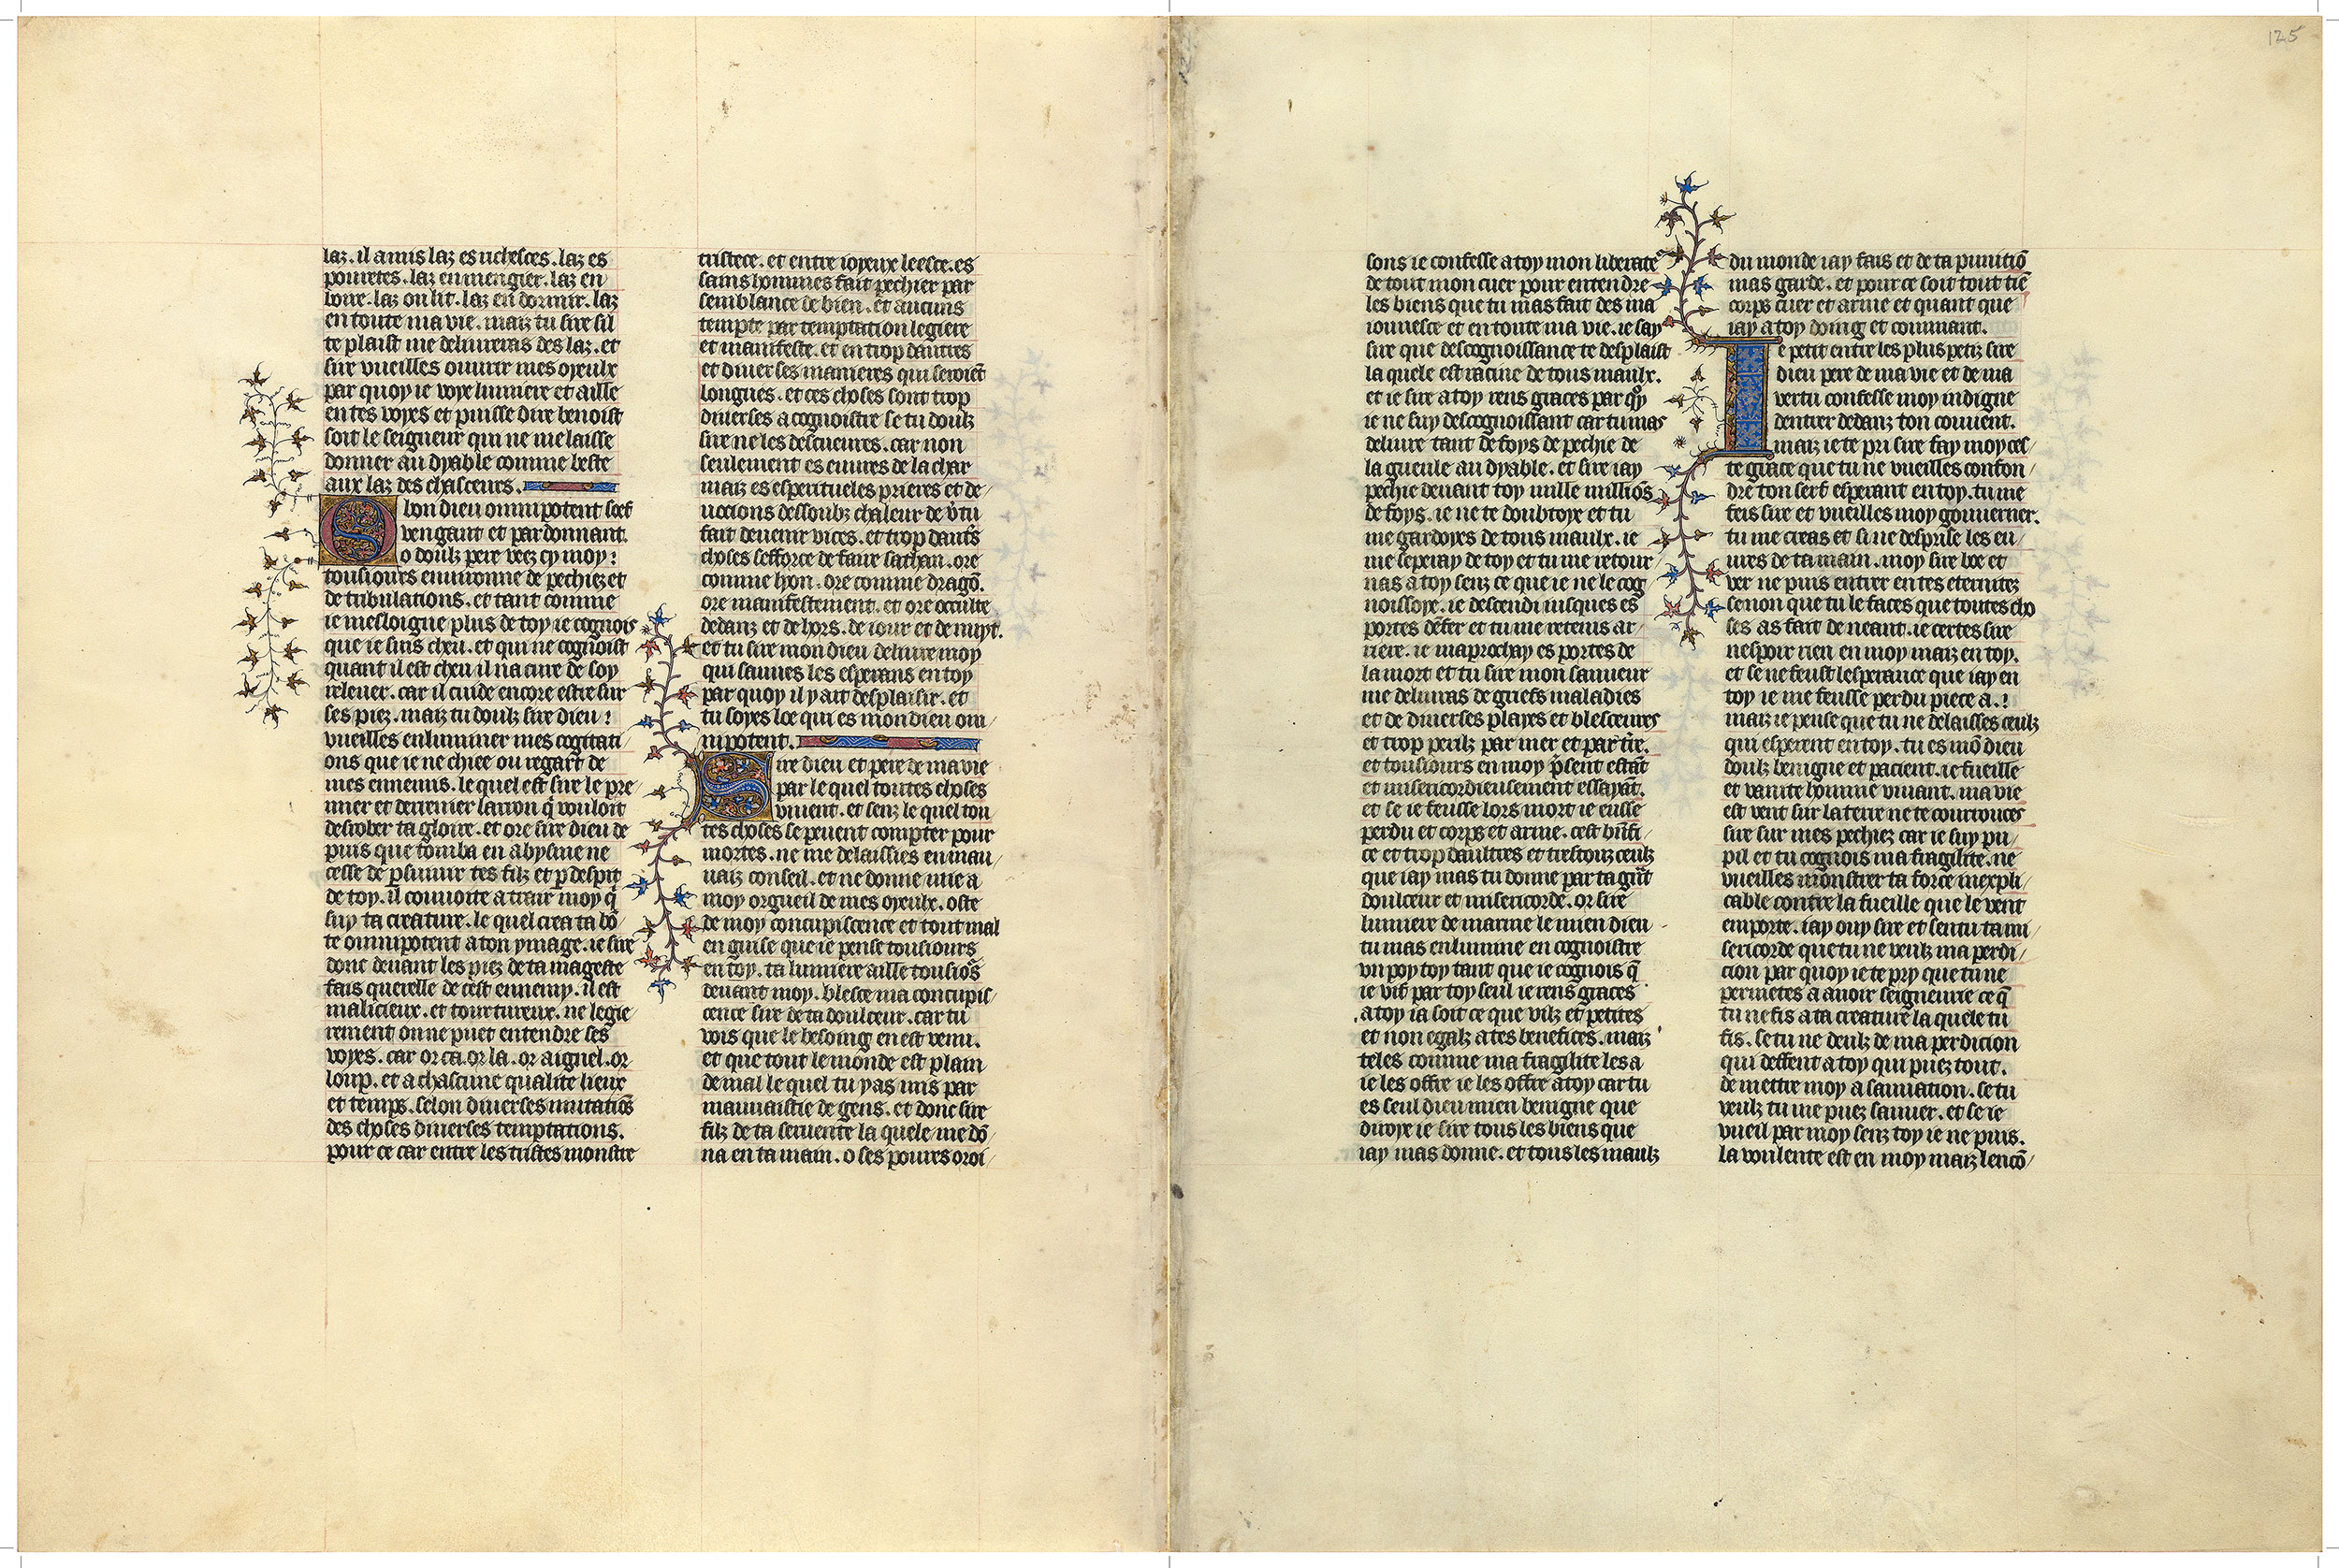 laz. il a mis laz es richesces. laz es
pouretes. laz en mengier. laz en
boire. laz ou lit. laz en dormir. laz
en toute ma vie. maiz tu sire sil
te plaist me deliureras des laz. et
sire vueilles ouurir mes oyeulx
par quoy ie voye lumiere et aille
en tes voyes et puisse dire benoist
soit le seigneur qui ne me laisse
donner au dyable comme beste
aux laz des chasceurs.
O bon dieu omnipotent soef
vengant et pardonnant.
o doulz pere veez cy moy:
tousiours enuironne de pechiez et
de tribulations. et tant comme
ie mesloigne plus de toy ie cognois
que ie suis cheu. et qui ne cognoist
quant il est cheu il na cure de soy
releuer. car il cuide encore estre sur
ses piez. maiz tu doulz sire dieu:
vueilles enluminer mes cogitati/
ons que ie ne chiee ou regart de
mes ennemis. le quel est sire le pre/
mier et derrenier larron q̄ vouloit
desrober ta gloire. et ore sire dieu de
puis que tomba en abysme ne
cesse de ꝑsuiuir tes filz et ꝑ despit
de toy. il conuoite a trair moy q̄
suy ta creature. le quel crea ta bō/
te omnipotent a ton ymage. ie sire
donc deuant les piez de ta mageste
fais querelle de cest ennemy. il est
malicieux. et tourtureux. ne legie/
rement on ne puet entendre ses
voyes. car or ca. or la. or aignel. or
loup. et a chascune qualite lieux
et temps. selon diuerses mutatiōs
des choses diuerses temptations.
pour ce car entre les tristes monstre
tristece. et entre ioyeux leesce. es
sains hommes fait pechier par
semblance de bien. et aucuns
tempte par temptation legiere
et manifeste. et en trop dautres
et diuerses manieres qui seroiēt
longues. et ces choses sont trop
diuerses a cognoistre se tu doulz
sire ne les descueures. car non
seulement es euures de la char
maiz es esperitueles prieres et de/
uocions dessoubz chaleur de v̄tu
fait deuenir vices. et trop daut̄s
choses sefforce de faire sathan. ore
comme lyon. ore comme dragō.
ore manifestement. et ore occulte
dedanz et dehors. de iour et de nuyt.
et tu sire mon dieu deliure moy
qui sauues les esperans en toy
par quoy il y ait desplaisir. et
tu soyes loe qui es mon dieu om/
nipotent.
Sire dieu et pere de ma vie
par le quel toutes choses
viuent. et senz le quel tou/
tes choses se peuent compter pour
mortes. ne me delaissies en mau/
uaiz conseil. et ne donne mie a
moy orgueil de mes oyeulx. oste
de moy concupiscence et tout mal
en guise que ie pense tousiours
en toy. ta lumiere aille tousiōs
deuant moy. blesce ma concupis/
cence sire de ta doulceur. car tu
vois que le besoing en est venu.
et que tout le monde est plain
de mal le quel tu y as mis par
mauuaistie de gens. et donc sire
filz de ta seruente la quele me dō/
na en ta main. o ses poures oroi/
125
sons ie confesse a toy mon liberate͛
de tout mon cuer pour entendre
les biens que tu mas fait des ma
iounesce et en toute ma vie. ie say
sire que descognoissance te desplaist
la quele est racine de tous maulx.
et ie sire a toy rens graces par qͦy
ie ne suy descognoissant car tu mas
deliure tant de foys de pechie de
la gueule au dyable. et sire iay
pechie deuant toy mille milliōs
de foys. ie ne te doubtoye et tu
me gardoyes de tous maulx. ie
me seperay de toy et tu me retour/
nas a toy senz ce que ie ne le cog/
noissoye. ie descendi iusques es
portes dēfer et tu me retenis ar/
riere. ie maprochay es portes de
la mort et tu sire mon sauueur
me deliuras de griefs maladies
et de diuerses playes et blesceures
et trop perilz par mer et par t̄re.
et tousiours en moy p̄sent estāt
et misericordieusement essayāt.
et se ie feusse lors mort ie eusse
perdu et corps et arme. cest bn̄fi/
ce et trop daultres et trestouz ceulz
que iay mas tu donne par ta grāt
doulceur et misericorde. or sire
lumiere de marme le mien dieu
tu mas enlumine en cognoistre
vn poy toy tant que ie cognois q̄
ie vif par toy seul ie rens graces
a toy ia soit ce que vilz et petites
et non egalz a tes benefices. maiz
teles comme ma fragilite les a
ie les offre ie les offre a toy car tu
es seul dieu mien benigne que
diroye ie sire tous les biens que
iay mas donne. et tous les maulz
du monde iay fais et de ta punitiō
mas garde. et pour ce soit tout tiē
corps cuer et arme et quant que
iay a toy doing et commant.
Ie petit entre les plus petiz sire
dieu pere de ma vie et de ma
vertu confesse moy indigne
dentrer dedanz ton couuent.
maiz ie te pri sire fay moy ces/
te grace que tu ne vueilles confon/
dre ton serf esperant en toy. tu me
feis sire et vueilles moy gouuerner.
tu me creas et si ne desprise les eu/
ures de ta main. moy sire boe et
ver ne puis entrer en tes eternitez
senon que tu le faces que toutes cho
ses as fait de neant. ie certes sire
nespoir rien en moy maiz en toy.
et se ne feust lesperance que iay en
toy ie me feusse perdu piece a.:
maiz ie pense que tu ne delaisses ceulz
qui esperent en toy. tu es mō dieu
doulz benigne et pacient. ie fueille
et vanite homme viuant. ma vie
est vent sur la terre ne te courrouces
sire sur mes pechiez car ie suy pu/
pil et tu cognois ma fragilite. ne
vueilles monstrer ta force inexpli/
cable contre la fueille que le vent
emporte. iay ouy sire et sentu ta mi/
sericorde que tu ne veulz ma perdi/
cion par quoy ie te pry que tu ne
permetes a auoir seigneurie ce q̄
tu ne fis a ta creature la quele tu
fis. se tu ne deulz de ma perdicion
qui deffent a toy qui puez tout.
de mettre moy a sauuation. se tu
veulz tu me puez sauuer. et se ie
vueil par moy senz toy ie ne puis.
la voulente est en moy maiz lencō/